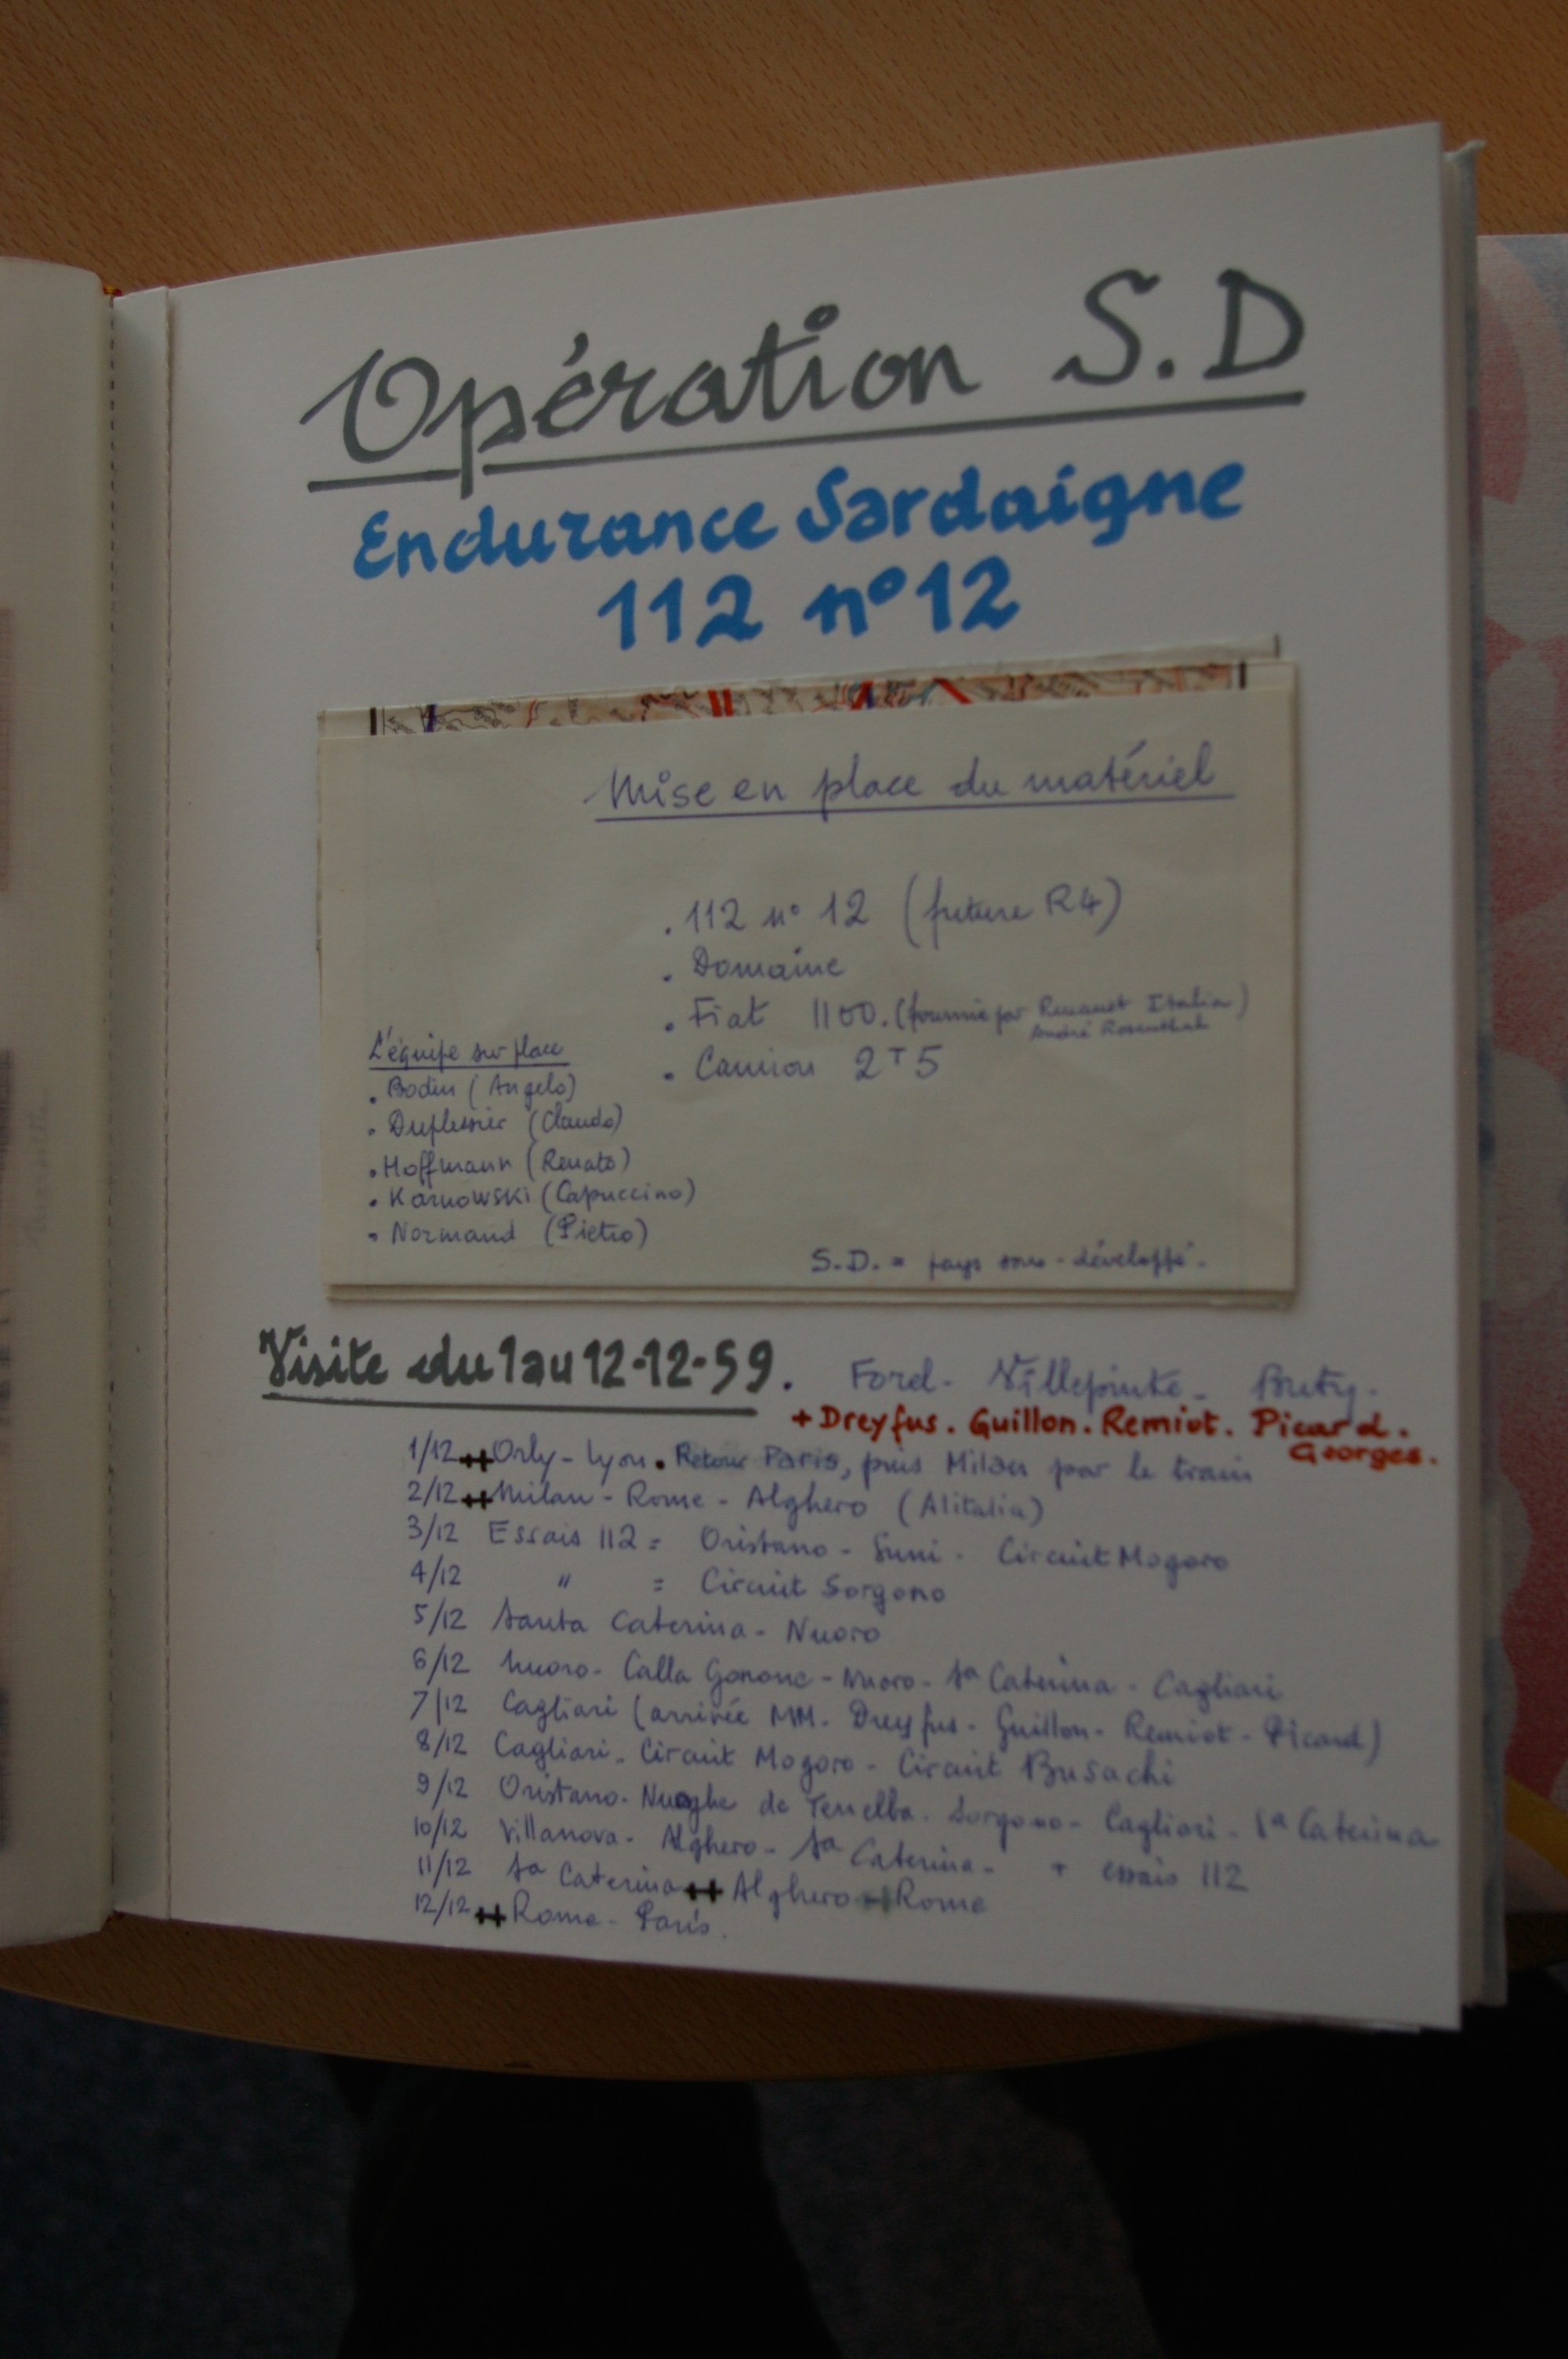 Opération S.D
Endurance Sardaigne
112 n°12
Mise en place du matériel
. 112 n° 12 (future R4)
. Domaine
. Fiat 1100. (fournie par Renault Italia)
André Rosenthal
. Camion 2T5
L'équipe sur place
. Bodin (Angelo)
. Duplessier (Claudo)
. Hoffmann (Renato)
. Karnowski (Capuccino)
. Normand (Pietro)
S.D. = pays sous-développé.
Visite du 1 au 12-12-59. Forel- Villepointe-
+ Dreyfus. Guillon. Remiot. Picard.
Georges.
1/12 ++ Orly - Lyon. Retour Paris, puis Milan par le train
2/12 ++ Milan - Rome - Alghero (Alitalia)
3/12 Essais 112 = Oristano - Suni - Circuit Mogoro
4/12 " = Circuit Sorgono
5/12 Santa Caterina - Nuoro
6/12 Nuoro - Calla Gonone - Nuoro - Sa Caterina - Cagliari
7/12 Cagliari (arrivée MM. Dreyfus - Guillon - Remiot - Picard)
8/12 Cagliari - Circuit Mogoro - Circuit Busachi
9/12 Oristano - de Sorgono - Cagliari - Sa Caterina
10/12 Villanova - Alghero - Sa Caterina - + essais 112
11/12 Sa Caterina ++ Alghero ++ Rome
12/12 ++ Rome - Paris.